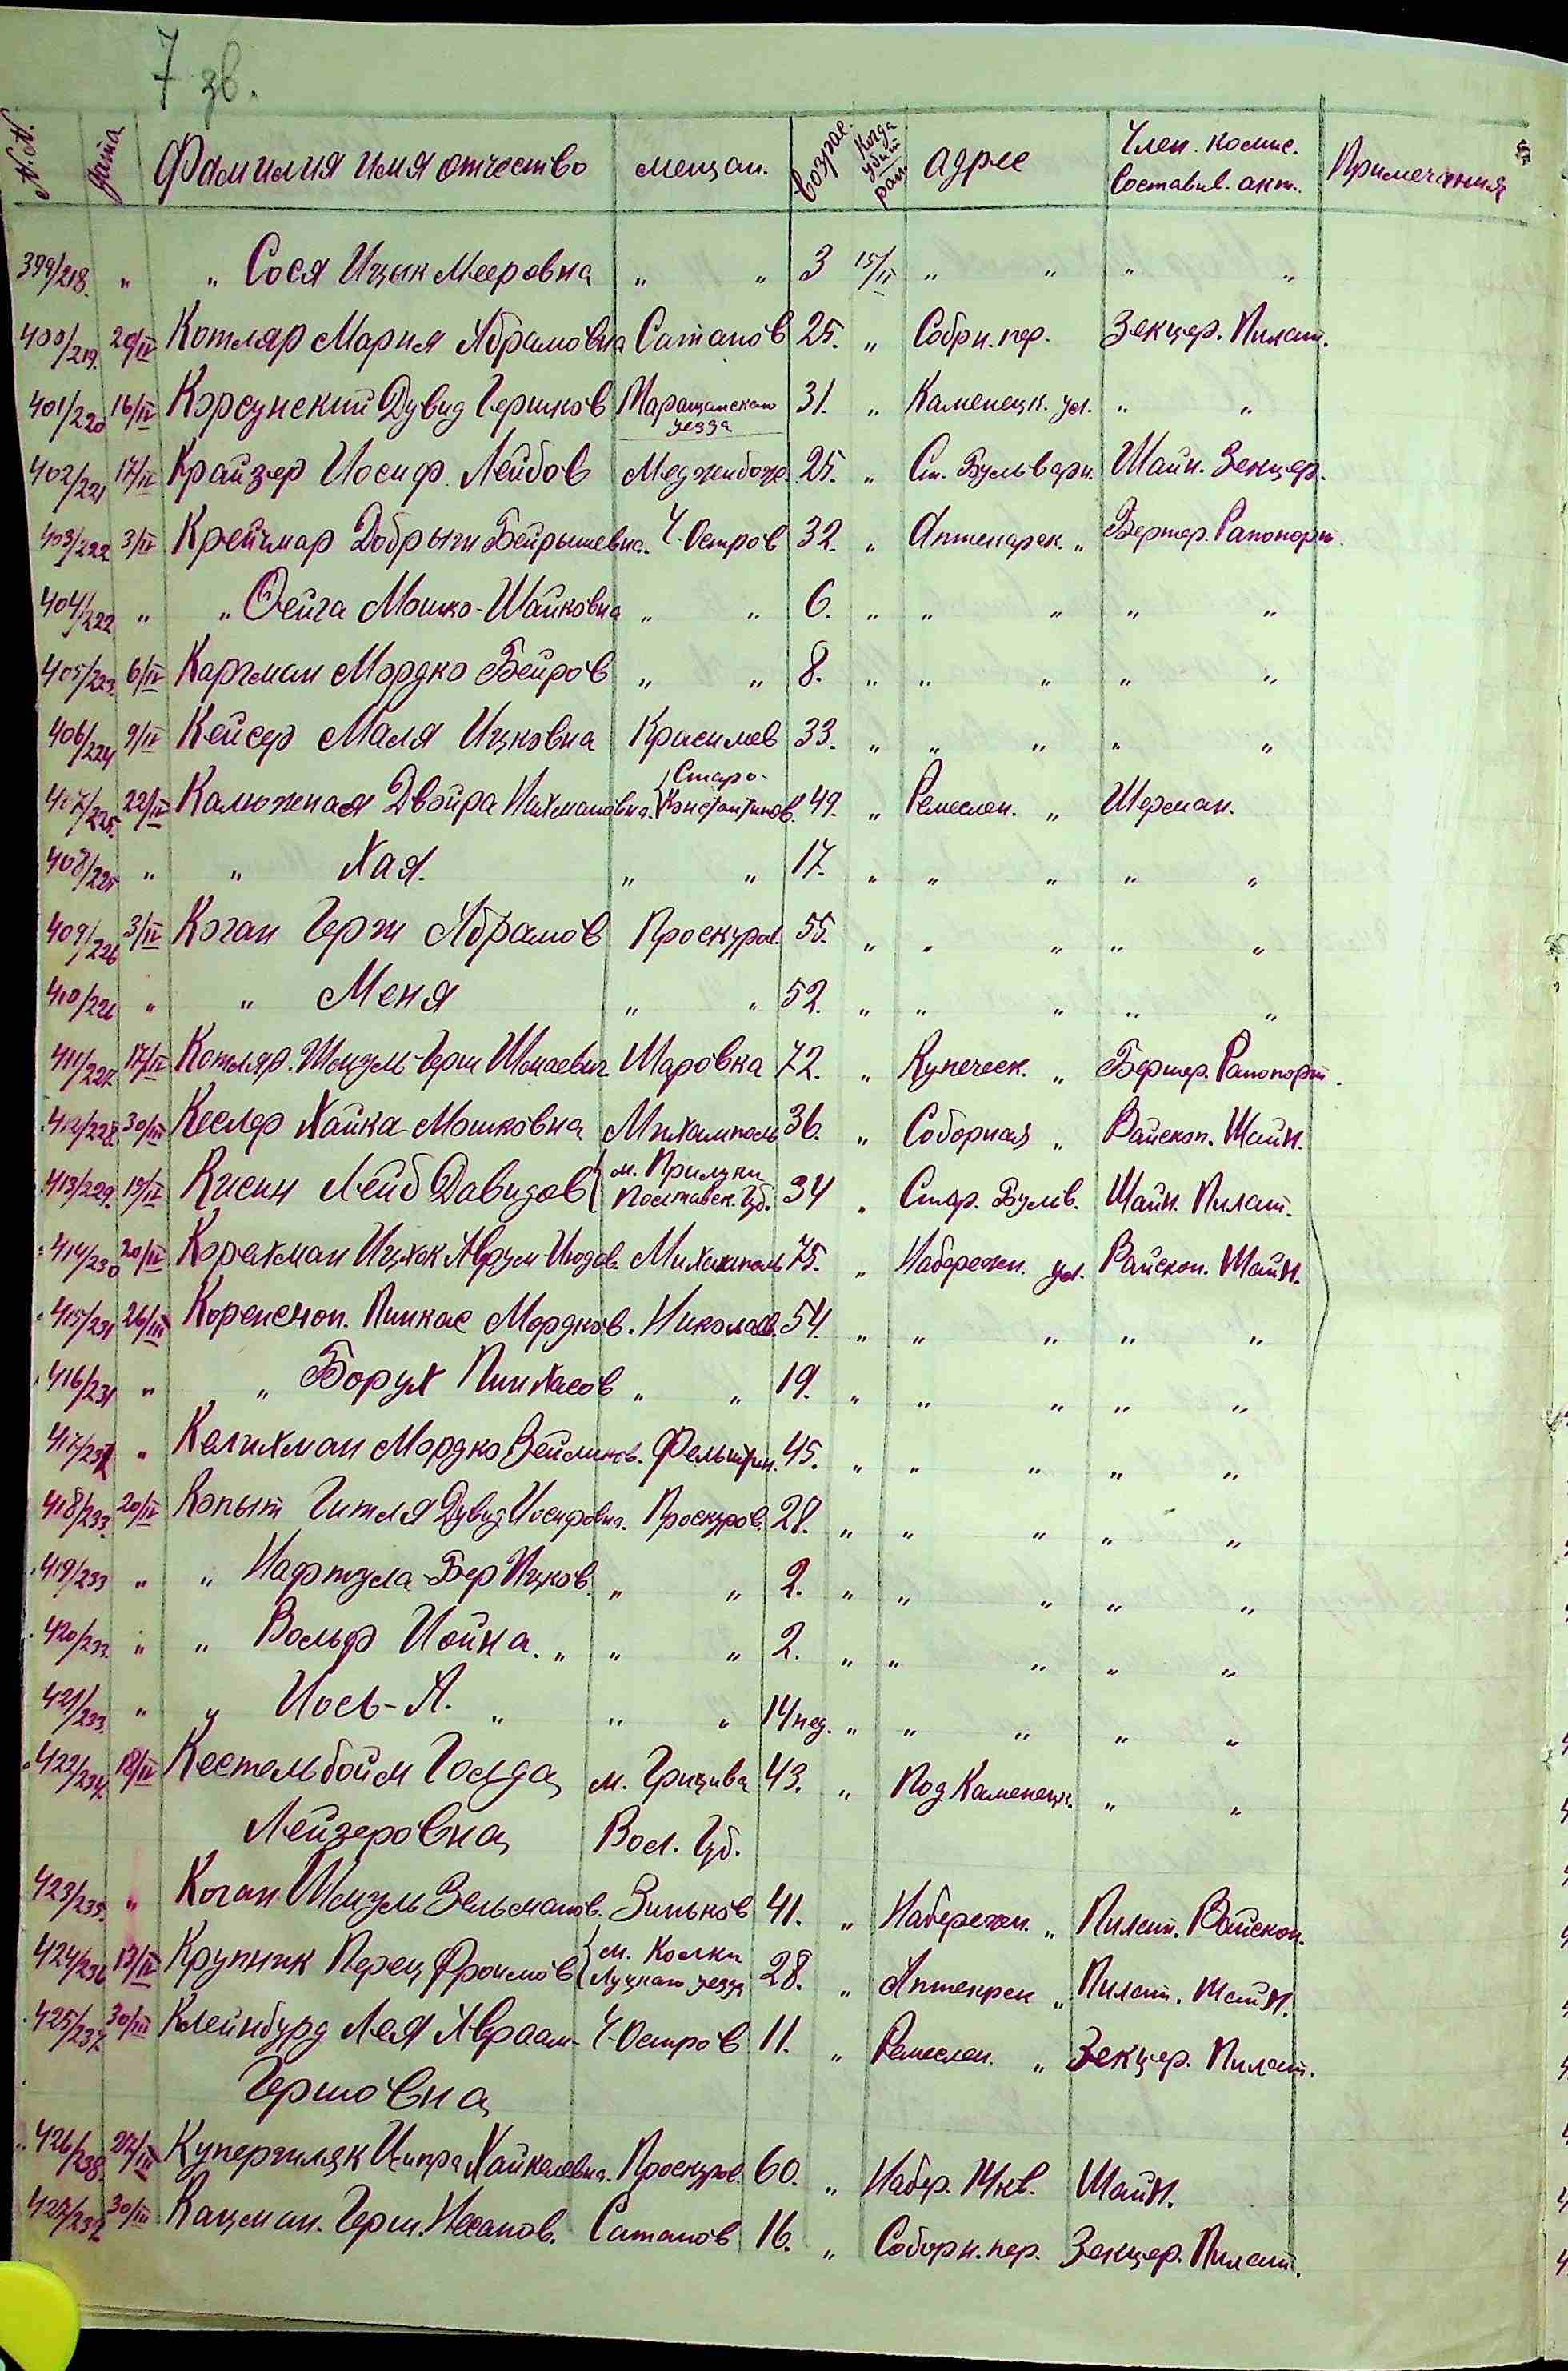 7 зв.
N.N. дата Фамилия имя отчество мещан. возрас. Когда убит ран адрес Член. комис. составив. акт. Примечания
399/218. " " Сося Ицык Мееровна " " 3 15/II " " " "
400/219. 20/IV Котляр Мария Абрамовна Сатанов 25. " Собрн. пер. Зекцер. Пилат.
401/220 16/IV Корсунский Дувид Гершков Таращанского уезда 31. " Каменецк. ул. " "
402/221 17/IV Крайзер Иосиф Лейбов Меджибож. 25. " Ст. Бульварн. Шайн. Зекцер.
403/222 3/IV Креймар Добрыш Бейрышевна. Ч. Остров 32. " Аптекарск. " Бертер. Рапопорт.
404/222 " " Фейга Мошко-Шайковна " " 6. " " " " "
405/223. 6/IV Каргман Мордко Беиров " " 8. " " " " "
406/224 9/IV Кейсер Маля Ицковна Красилев 33. " " " " "
407/225. 22/IV Калюжная Двойра Нахмановна. Старо-Константинов. 49. " Ремеслен. " Шерман.
408/225 " " Хая. " " 17. " " " " "
409/226 3/IV Коган Герш Абрамов Проскуров. 55. " " " " "
410/226 " " Меня " " 52. " " " " "
411/227. 17/IV Котляр. Шмуль-Герш Шмаевич Шаровка 72. " Купеческ. " Бертер. Рапопорт.
412/228. 30/III Кеслер Хайка-Мошковна Михамполь 36. " Соборная " Вайскоп. Шайн.
413/229. 15/IV Кисин Лейб Давидов м. Прилуки Полтавск. Губ. 34 " Стар. Бульв. Шайн. Пилат.
414/230 20/IV Корахман Ицхок Аврум-Июдов. Михамполь 75. " Набережн. ул. Вайскоп. Шайн.
415/231 26/III Коренсноп. Пинкас Мордков. Николаев. 54. " " " " "
416/231 " " Борух Пинхасов " " 19. " " " " "
417/232 " Келихман Мордко Зейликов. Фельштин. 45. " " " " "
418/233. 20/IV Копыт Гитля Дувид-Иосифовна. Проскуров. 28. " " " " "
419/233 " " Нафтула-Бер Ицков. " " 2. " " " " "
420/233. " " Вольф Иойна. " " " 2. " " " " "
421/233. " " Иось-А. " " " 14 нед. " " " " "
422/234. 18/IV Кестельбойм Голда м. Грицива 43. " Под Каменецк. " "
Лейзеровна Вол. Губ.
423/235. " Коган Шмуль Зельманов. Зиньков 41. " Набережн. " Пилат. Вайскоп.
424/236 13/IV Крупник Перец Фроимов м. Колки Луцкаго уезда 28. " Аптекрск " Пилат. Шайн.
425/237. 30/III Клейнбурд Лея Авраам- Ч-Остров 11. " Ремеслен. " Зекцер. Пилат.
Гершовна
426/238. 27/III Купершляк Ципра Хайкелевна. Проскуров. 60. " Набер. 14 кв. Шайн.
427/239. 30/III Кацман. Герш. Несанов. Сатанов 16. " Соборн. пер. Зекцер. Пилат.